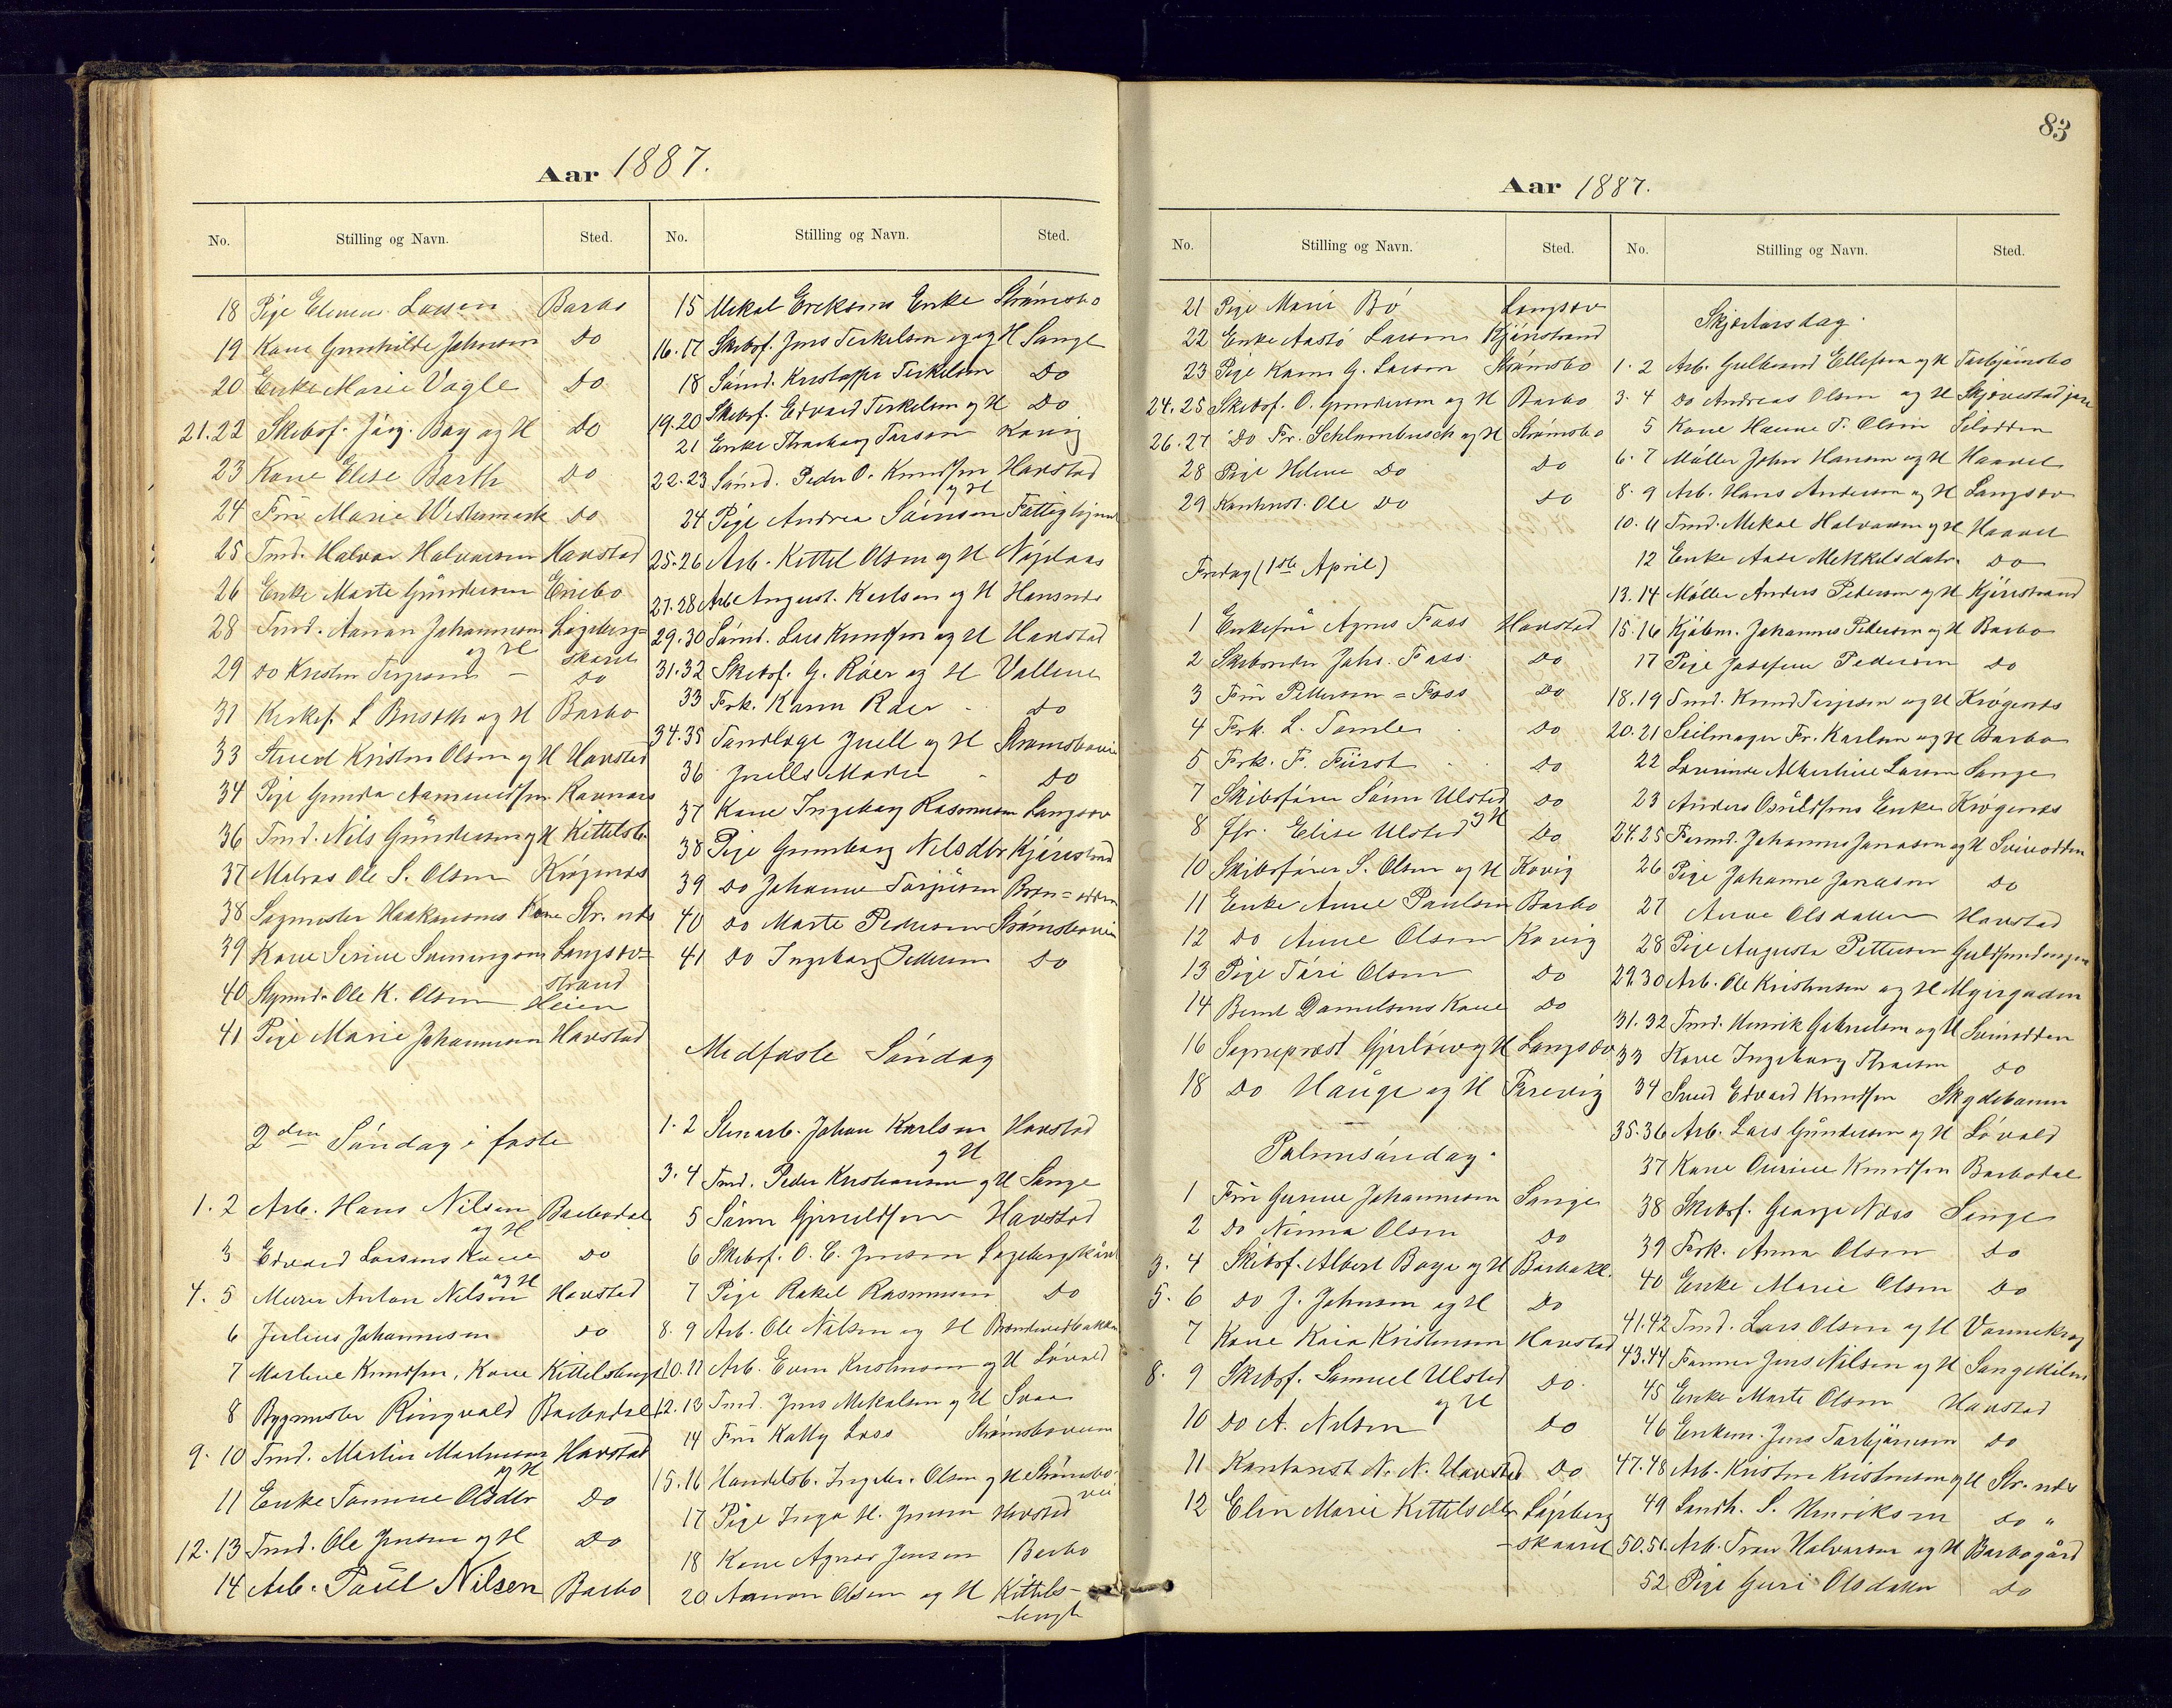 Aar 1887.
No. Stilling og Navn. Sted.
18 Pige Larsen Barbo
19 Kone Gunhilde Johnsen Do
20 Enke Marie Vagle Do
21.22 Skibsf. Jörg. Bay og H Do
23 Kone Elise Barth Do
24 Frü Marie Do
25 Tmd. Halvor Halvorsen Havstad
26 Enke Marte Gündersen
28 Tmd. Aanon Johannesen Løgeberg=
og H skaret
29 Do Kristen Terjesen - Do
31 Kirkef. L og H Barbo
33 Kristen Olsen og H Havstad
34 Pige Gunda
36 Tmd. Nils Gündersen og H Kittelsb.
37 Matros Ole S. Olsen Krøgenes
38 Sagmester Haakonsens Kone Str. nes
39 Kone Serine Langsæv=
strand
40 Ole K. Olsen Heien
41 Pige Marie Johannesen Havstad
2den Søndag i faste
1.2 Arb. Hans Nilsen Barbodal
og H
3 Edvard Larsens Kone Do
4.5 Murer Anton Nilsen Havstad
og H
6 Julius Johannesen Do
7 Marline Knudsen, Kone Kittelsbugt
8 Bygmester Ringvald Barbodal
9.10 Tmd. Martin Havstad
og H
11 Enke Tomine Olsdtr Do
12.13 Tmd. Ole Jensen og H Do
14 Arb. Paül Nilsen Barbo
No. Stilling og Navn. Sted.
15 Mikal Eriksens Enke Strømsbo
16.17 Skibsf. Jens Terkelsen og H Songe
18 Sømd. Kristoffer Terkelsen Do
19.20 Skibsf. Edvard Terkelsen og H Do
21 Enke Larsen Kovig
22.23 Sømd. Peder O. Knudsen Havstad
og H
24 Pige Andrea
25.26 Arb. Kittel Olsen og H
27.28 Arb August Karlsen og H
29.30 Sømd. Lars Knudsen og H Havstad
31.32 Skibsf. G. Röer og H Vallene
33 Frk. Karen Röer Do
34.35 Tandlæge Juell og H Strømsboveien
36 Juells Moder - Do
37 Kone Ingeborg Rasmussen Langsæv
38 Pige Gunborg Nilsdtr
39 Do Johanne
40 Do Marte Pedersen Strømsboveien
41 Do Ingeborg Pedersen Do
Midfaste Søndag
1.2 Stenarb. Johan Karlsen Havstad
og H
3.4 Tmd. Peder Kristiansen og H Songe
5 Søren Havstad
6 Skibsf. O. C. Jensen Løgebergskåret
7 Pige Rakel Rasmussen Do
8.9 Arb. Ole Nilsen og H
10.11 Arb. Even Kristensen og H Løvold
12.13 Tmd. Jens Mikalsen og H
14 Frü Kathy Strømsboveien
15.16 Handelsb. Olsen og H Strømsbo-
vei
17 Pige Inga H. Jensen Havstad
18 Kone Agnes Jensen Barbo
20 Aanon Olsen og H Kittels-
-bugt
83
Aar 1887.
No. Stilling og Navn. Sted.
21 Pige Marie Bö Langsæv
22 Enke Larsen
23 Pige Karen G. Larsen Strømsbo
24.25 Skibsf. O. Gundersen og H Barbo
26.27 Do Fr. Schlambusch og H Strømsbo
28 Pige Helene Do Do
29 Kontorist. Ole Do Do
Fredag (1ste April)
1 Enkefrü Agnes Foss Havstad
2 Skibsreder Johs. Foss Do
3 Frü Pettersen = Foss Do
4 Frk. L. Do
5 Frk. F. Fürst Do
7 Skibsfører Sören Ulsted Do
og H
8 Elise Ulsted Do
10 Skibsfører S. Olsen og H Kovig
11 Enke Anne Paulsen Barbo
12 Do Anne Olsen Kovig
13 Pige Olsen Do
14 Bernt Danielsens Kone Do
16 Sognepræst og H Langsæv
18 Do Haüge og H
Palmesøndag.
1 Frü Gurine Johannesen Songe
2 Do Olsen Do
3.4 Skibsf. Albert Boye og H
5.6 Do J. Johnsen og H Do
7 Kone Kaia Kristensen Havstad
8.9 Skibsf. Samuel Ulsted Do
og H
10 Do A. Nilsen Do
11 Kontorist N. N. Havsted Do
12 Elen Marie Kittelsdtr Løgeberg
-skaaret
Aar 1887.
No. Stilling og Navn. Sted.
Skjærtorsdag.
1.2 Arb. Gulbrand Ellefsen og H Torbjørnsbo
3.4 Do Andreas Olsen og H
5 Kone Hanne T. Olsen
6.7 Møller John Hansen og H
8.9 Arb. Hans Andersen og H Langsæv
10.11 Tmd. Mikal Halvorsen og H
12 Enke Aase Mekkelsdatr. Do
13.14 Møller Anders Pedersen og H
15.16 Johannes Pedersen og H Barbo
17 Pige Josefine Pedersen Do
18.19 Tmd. Knud Terjesen og H Krøgenes
20.21 Seilmager Fr. Karlsen og H Barbo
22 Albertine Larsen Songe
23 Anders Enke Krøgenes
24.25 Johannes Jonassen og H Svinodden
26 Pige Johanne Jonassen Do
27 Anne Olsdatter Havstad
28 Pige Augusta Pettersen
29.30 Arb. Ole Kristensen og H Myrgaden
31.32 Tmd. Henrik Gabrielsen og H Svinodden
33 Kone Ingeborg Do
34 Edvard Knudsen Skydebanen
35.36 Arb. Lars Gündersen og H Løvold
37 Kone Knudsen Barbodal
38 Skibsf. George Næss Songe
39 Frk. Anna Olsen Do
40 Enke Marie Olsen Do
41.42 Tmd. Lars Olsen og H
43.44 Jens Nilsen og H Songekilen
45 Enke Marte Olsen Havstad
46 Enkem. Jens Torbjørnsen Do
47.48 Arb. Kristen Kristensen og H Str. nes
49 Landh. S. Henriksen Do "
50.51. Arb. Halvorsen og H Barbogård
52 Pige Guri Olsdatter Do